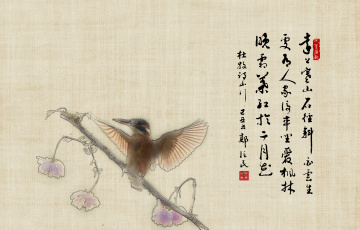 遠上寒山石徑斜白雲生
處有人家停車坐愛楓林
晚霜葉紅於二月花
杜牧詩山行